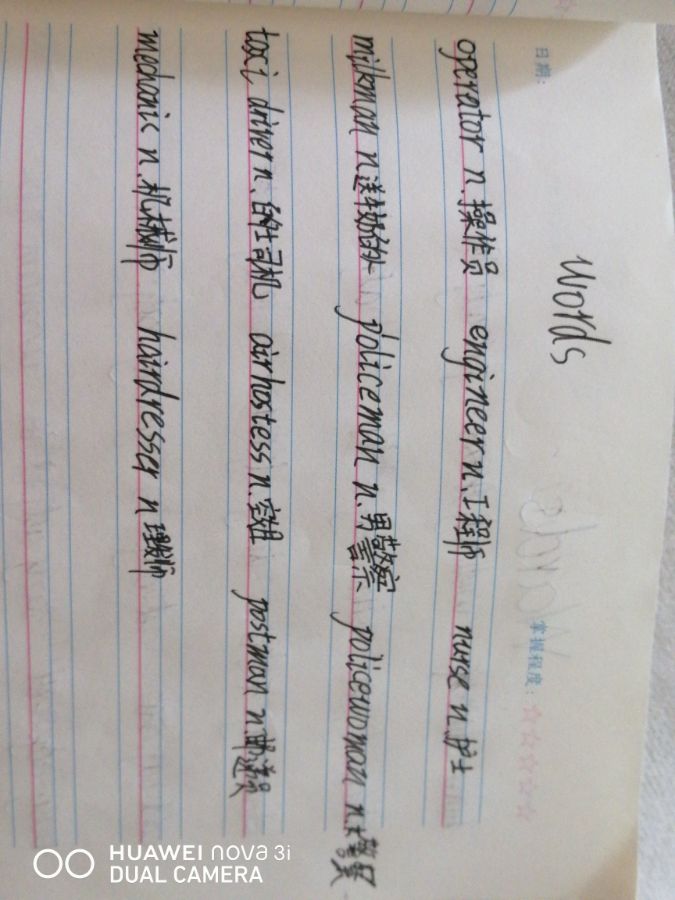 日期:
掌握程度: ☆☆☆☆☆
words
operator n.操作员 engineer n.工程师 nurse n.护士
milkman n.送牛奶的人 policeman n.男警察 policewoman n.女警察
taxi driver n.的士司机 air hostess n.空姐 postman n.邮递员
mechanic n.机械师 hairdresser n.理发师
HUAWEI nova 3i
DUAL CAMERA